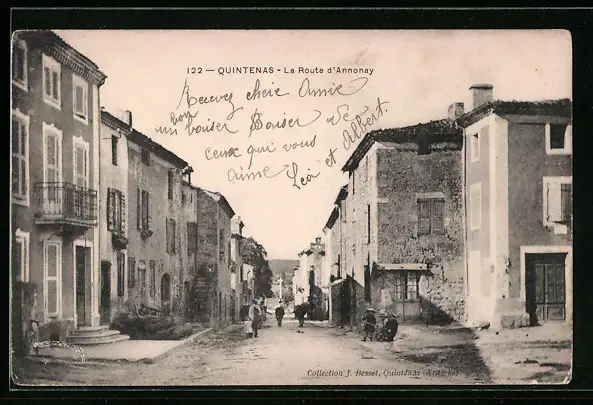 122 - QUINTENAS - La Route d'Annonay
Recevez chére Amie
un bon baiser Baiser de
ceux qui vous
aime Léa et Albert
Collection J. Besset, Quintenas (Ardèche)